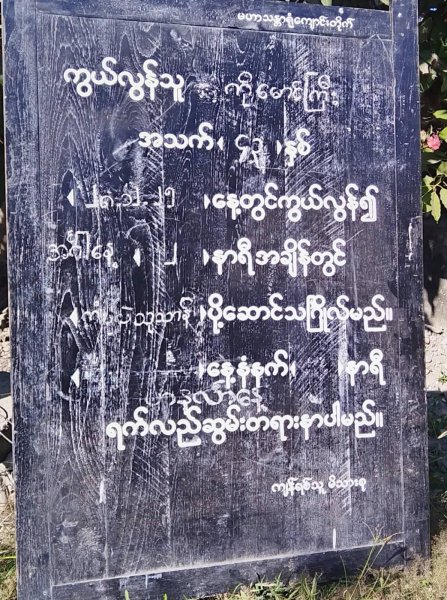 မဟာသန္တာရုံကျောင်းတိုက်
ကွယ်လွန်သူ ကိုမောင်ကြီး
အသက် ( ၄၃ ) နှစ်
( ၂၈.၁၁.၂၅ ) နေ့တွင်ကွယ်လွန်၍
အင်္ဂါနေ့ ( ၂ ) နာရီအချိန်တွင်
သုသာန် ) ပို့ဆောင်သဂြိုလ်မည်။
( ) နေ့နံနက် ( ) နာရီ
ရက်လည်ဆွမ်းတရားနာပါမည်။
ကျန်ရစ်သူ မိသားစု